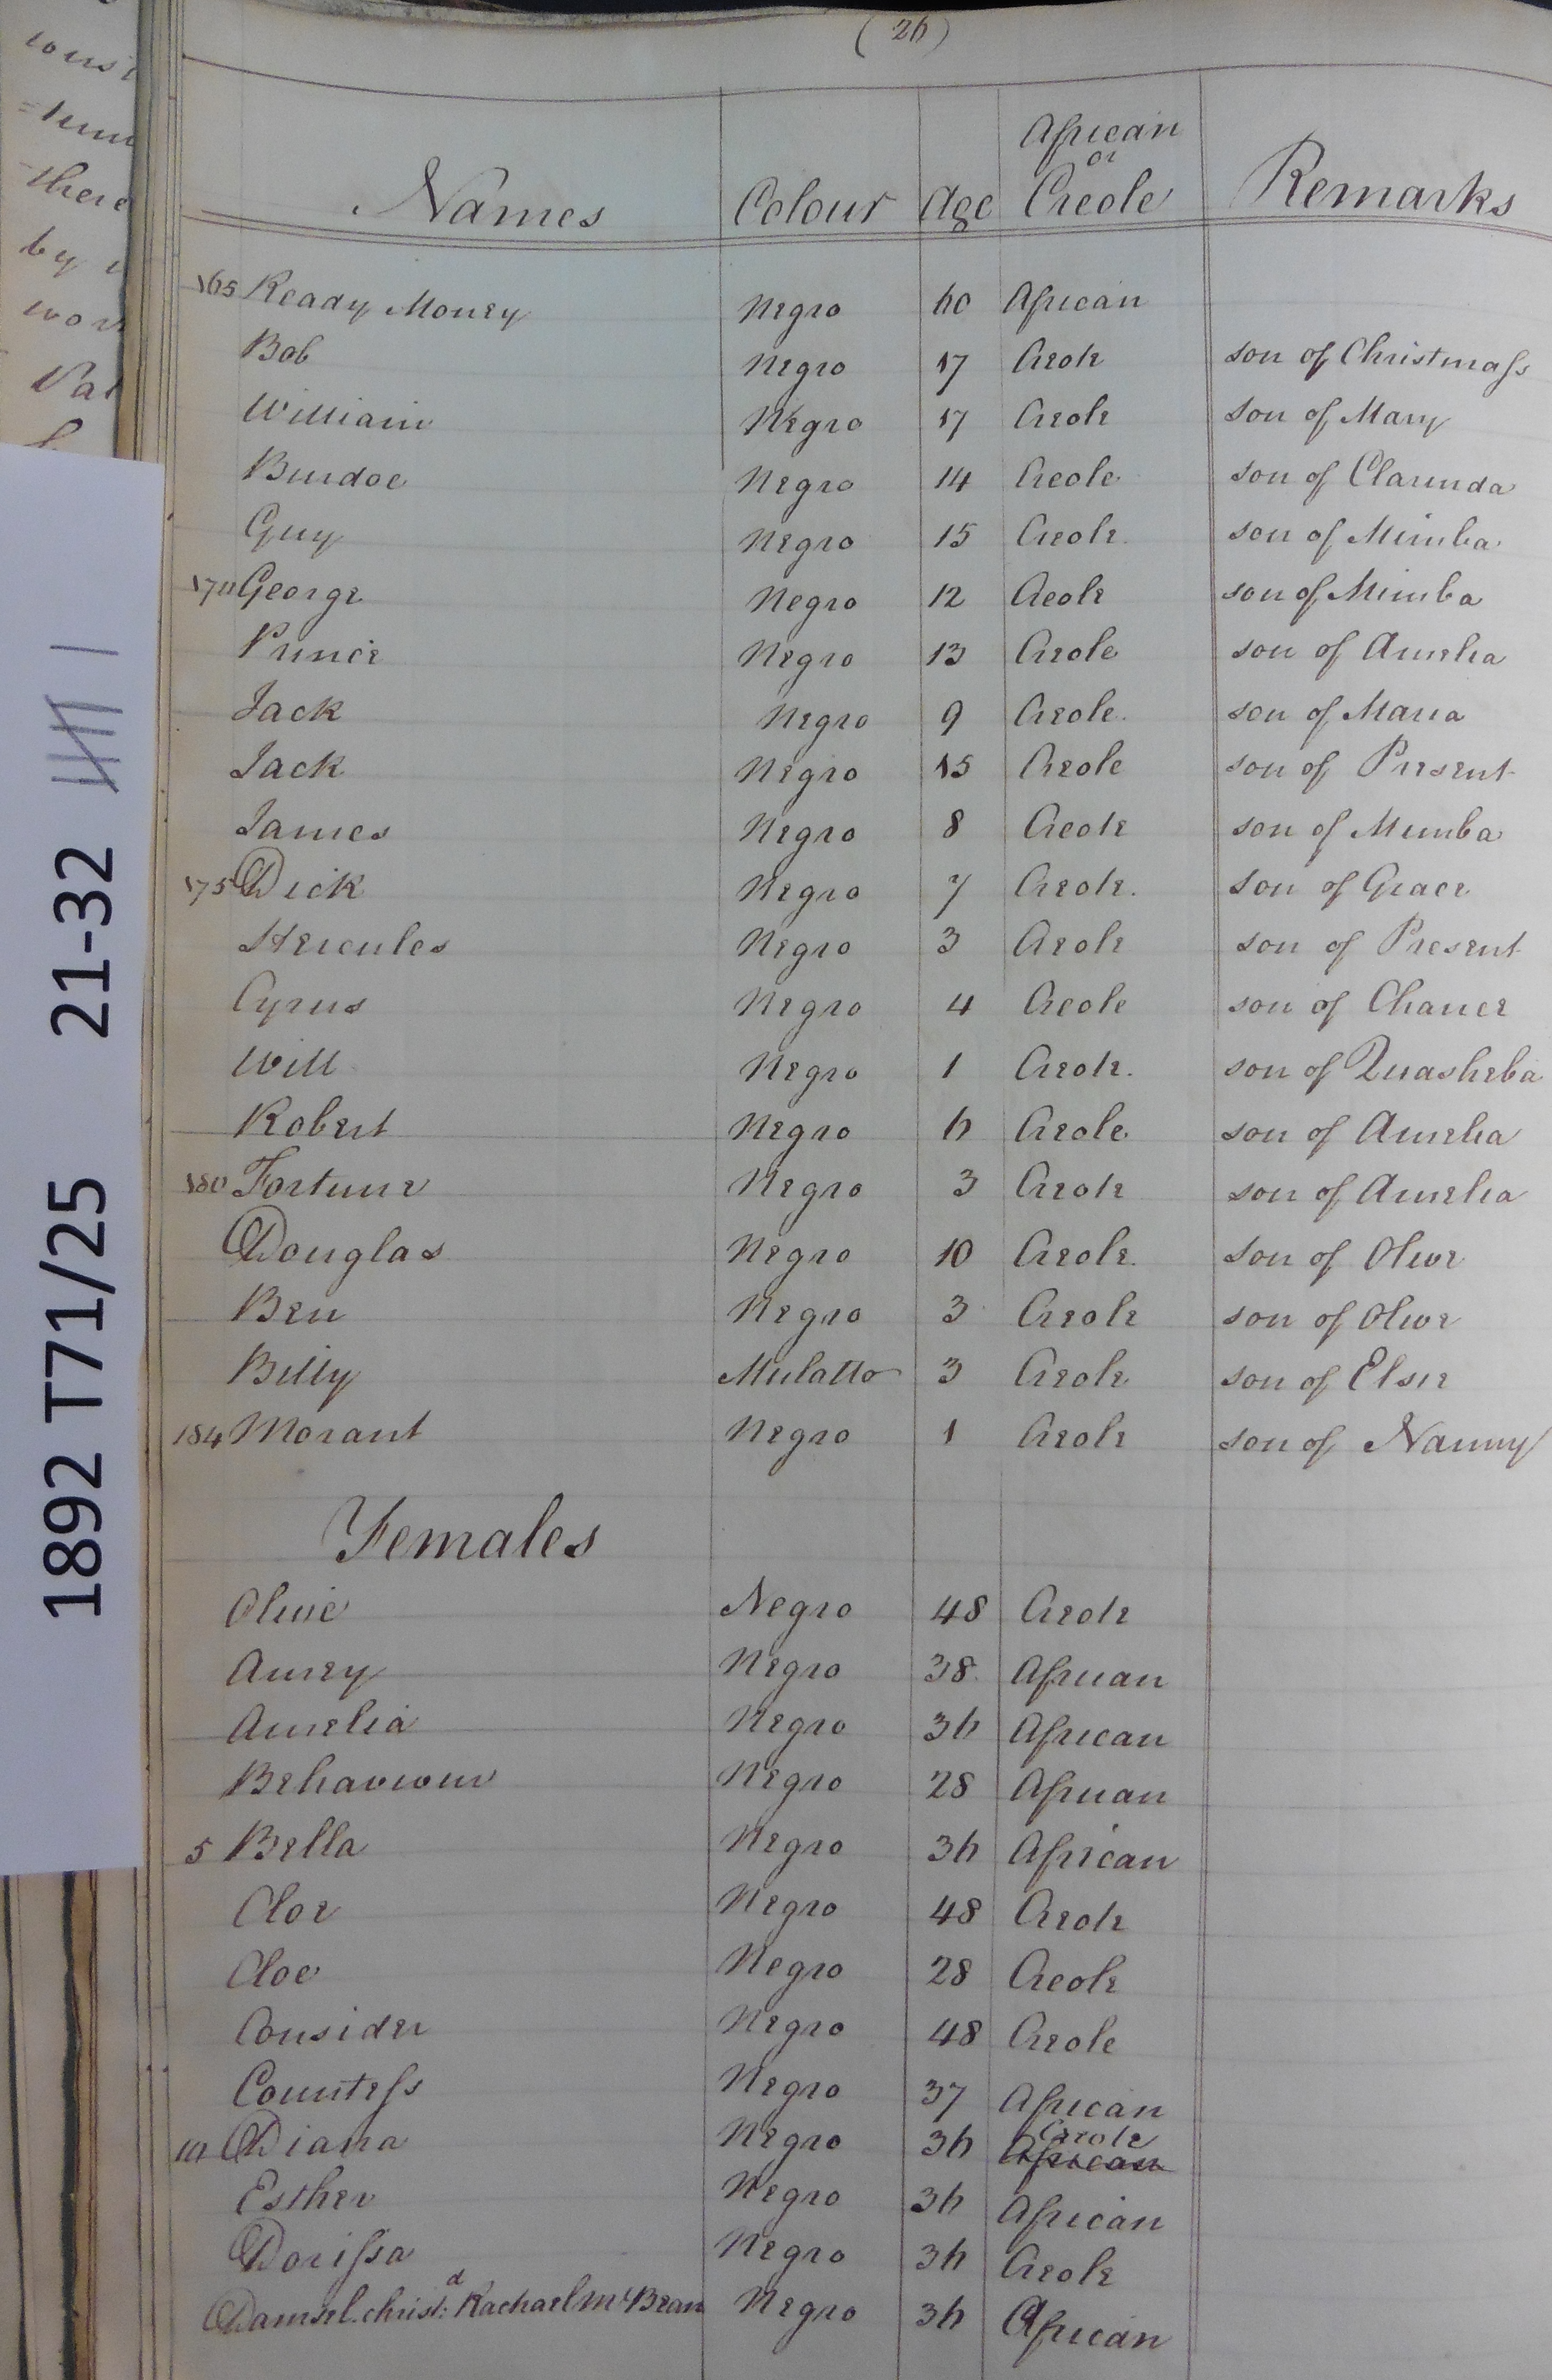 (26)
Names Colour Age African or Creole Remarks
165 Ready Money Negro 60 African
Bob Negro 17 Creole son of Christmass
William Negro 17 Creole son of Mary
Burdoe Negro 14 Creole son of Clarinda
Guy Negro 15 Creole son of Mimba
170 George Negro 12 Creole son of Mimba
Prince Negro 13 Creole son of Amelia
Jack Negro 9 Creole son of Maria
Jack Negro 15 Creole son of Present
James Negro 8 Creole son of Mimba
175 Dick Negro 7 Creole son of Grace
Hercules Negro 3 Creole son of Present
Cyrus Negro 4 Creole son of Chance
Will Negro 1 Creole son of Quasheba
Robert Negro 6 Creole son of Amelia
180 Fortune Negro 3 Creole son of Amelia
Douglas Negro 10 Creole son of Olive
Ben Negro 3 Creole son of Olive
Billy Mulatto 3 Creole son of Elsie
184 Morant Negro 1 Creole son of Nanny
Females
Olive Negro 48 Creole
Amey Negro 38 African
Amelia Negro 36 African
Behaviour Negro 28 African
5 Bella Negro 36 African
Cloe Negro 48 Creole
Cloe Negro 28 Creole
Consider Negro 48 Creole
Countess Negro 37 African
10 Diana Negro 36 Creole African
Esther Negro 36 African
Dorissa Negro 36 Creole
Damsel christ:d Rachael McBean Negro 36 African
1892 T71/25 21-32
there
by